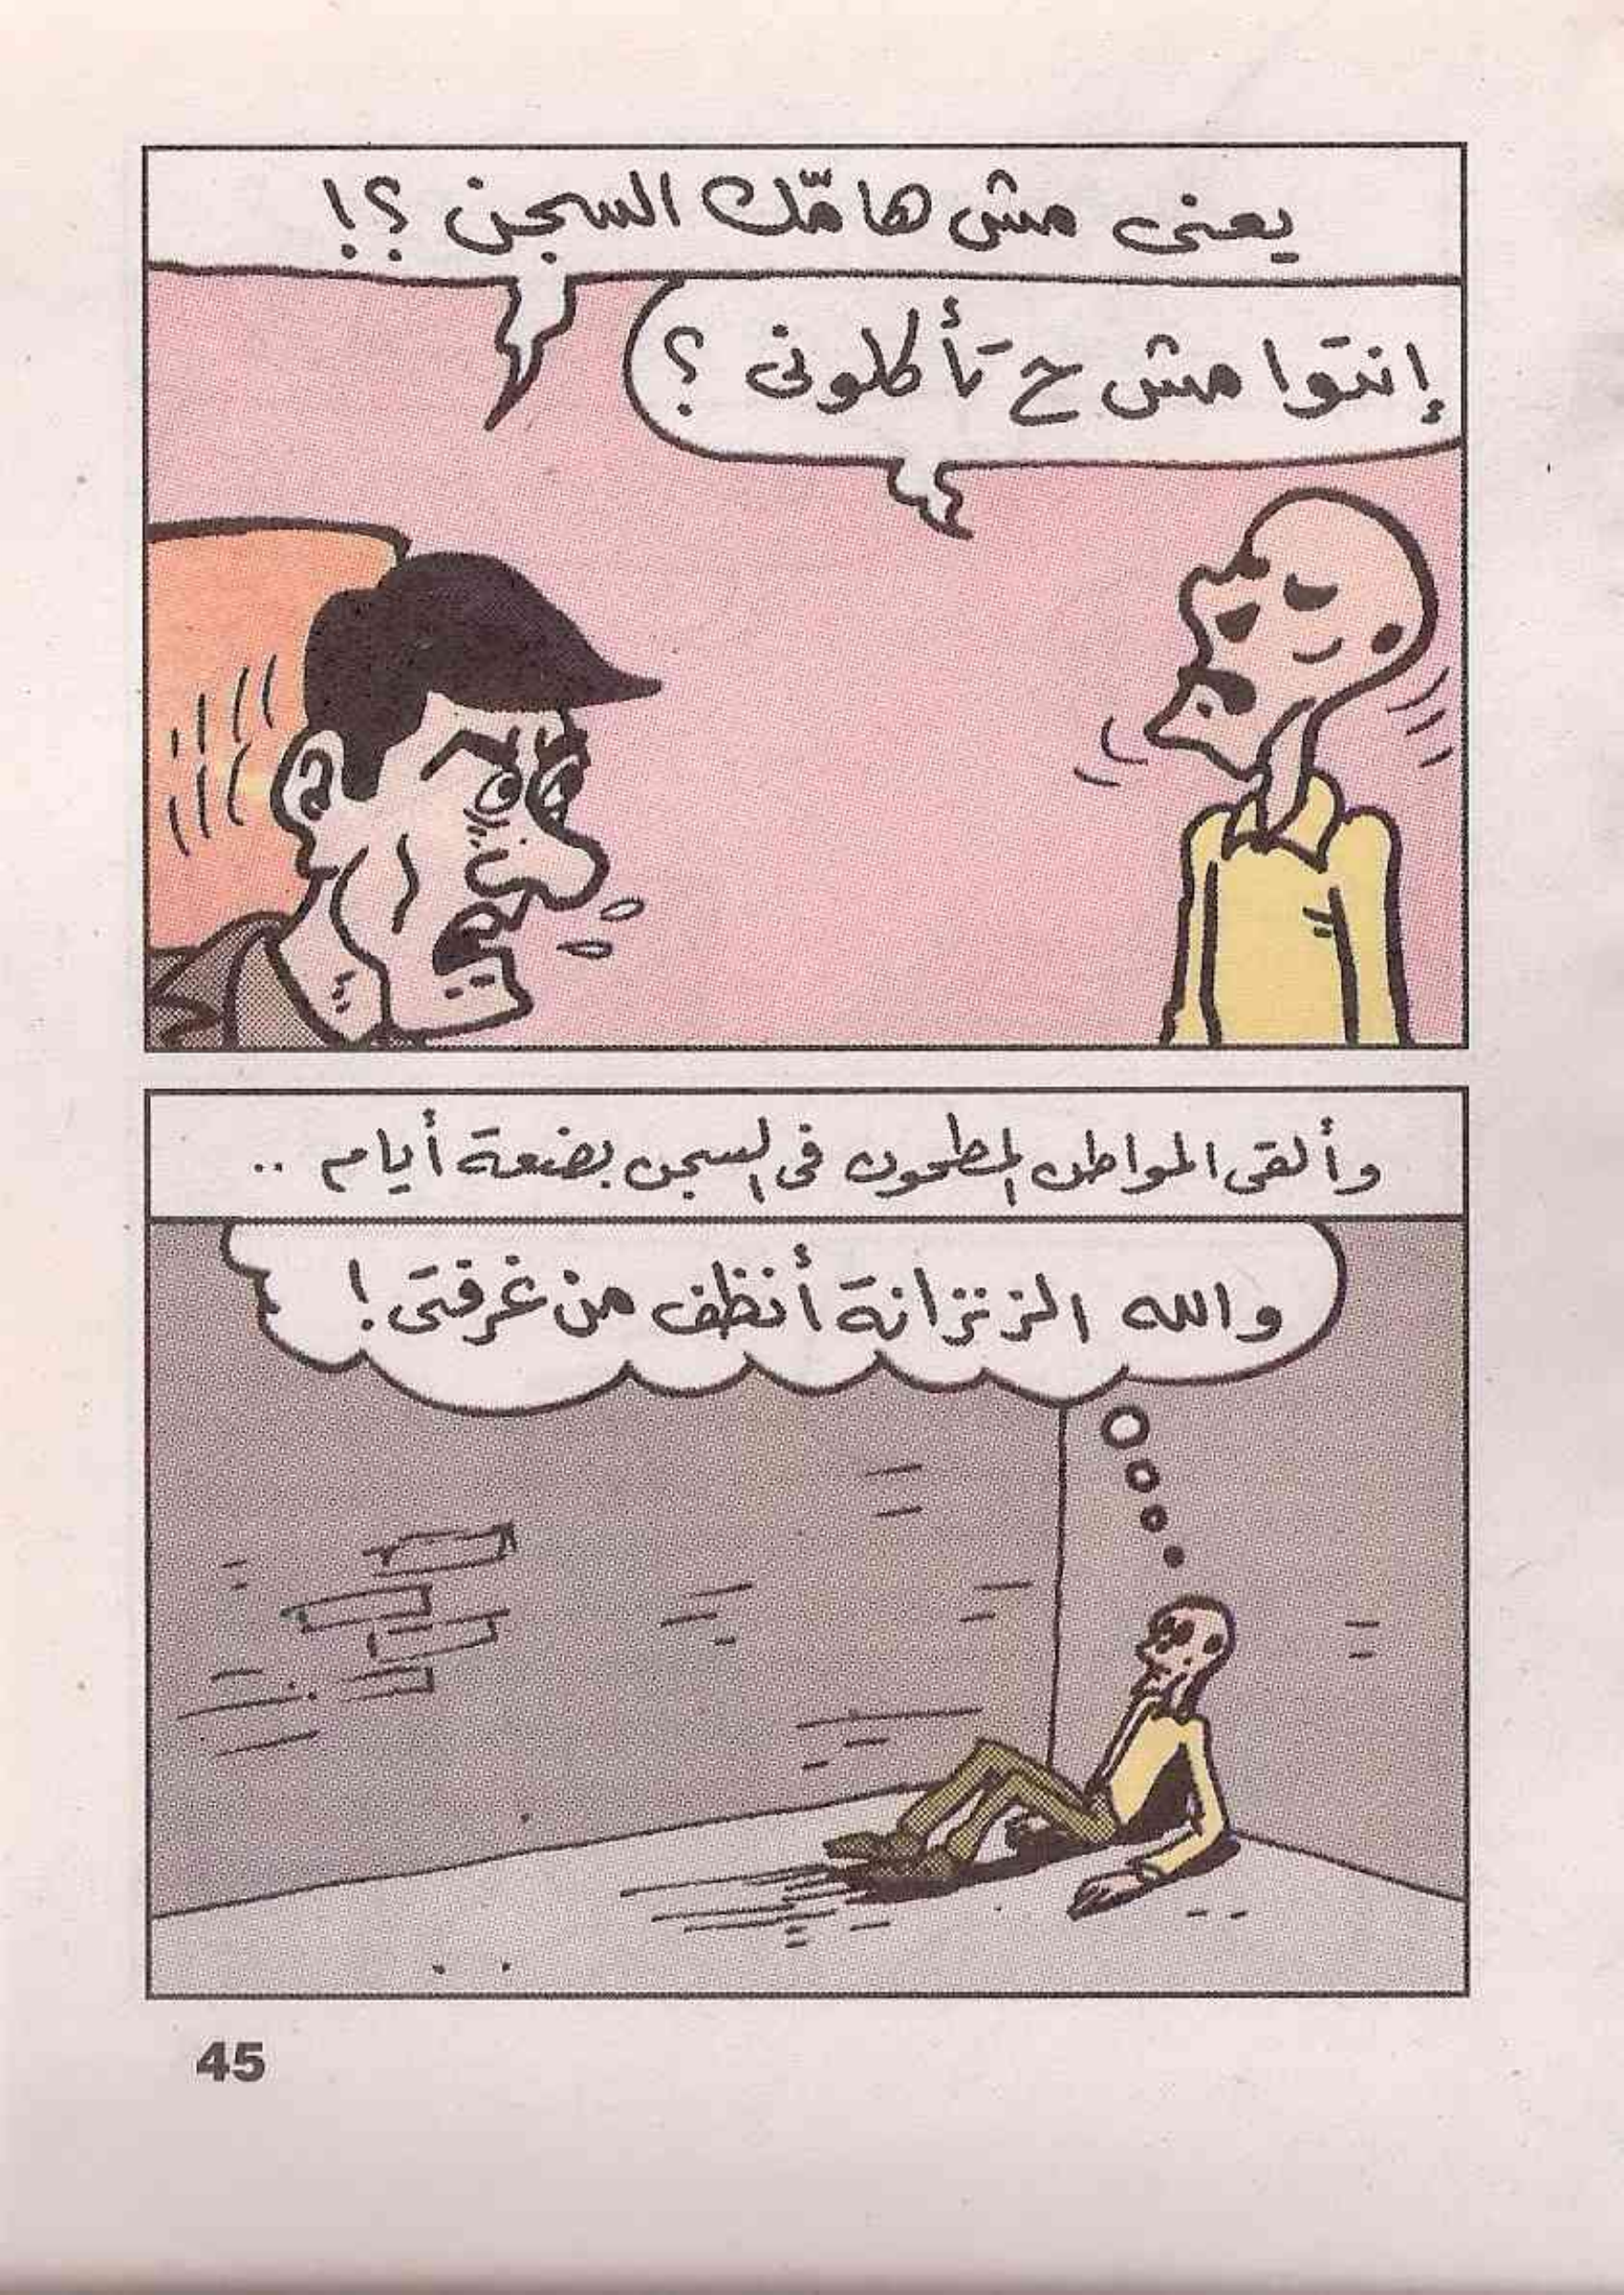 يعنى مش هامّك السجن ؟!
إنتوا مش ح تأكلونى ؟
وألقى المواطن المطحون فى السجن بضعة أيام ..
والله الزنزانة أنظف من غرفتى !
45